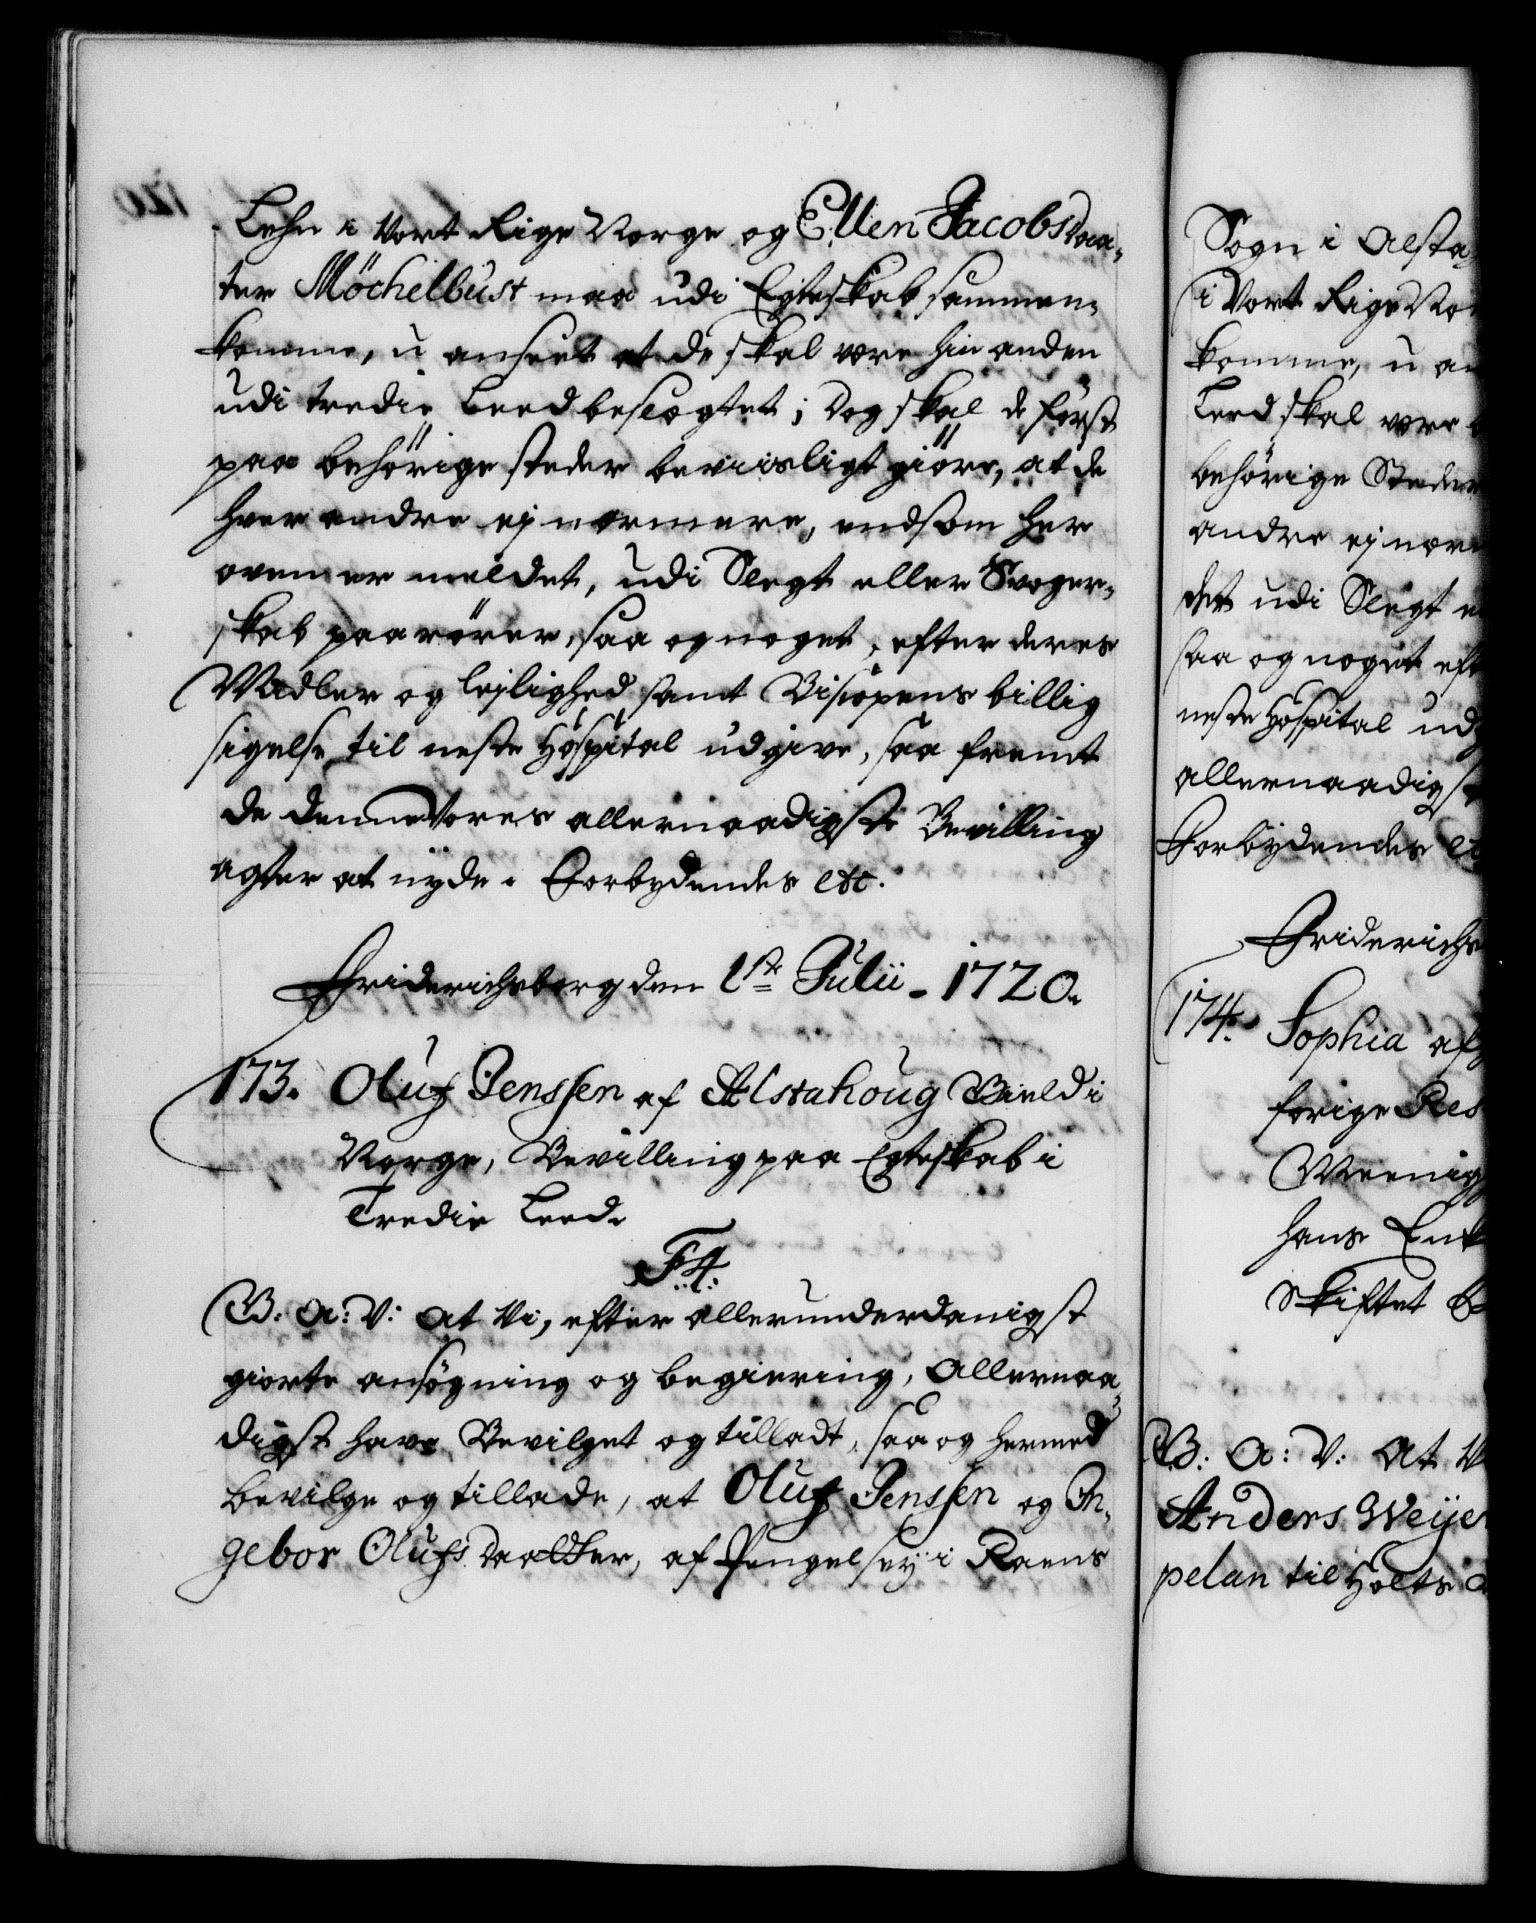 Lehn i Vort Rige Norge og Ellen Jacobsdaa-
ter Möchelbust maa udi Egteskab sammen-
komme, uanseet at de skal være hin anden
udi tredie Leed beslægtet; Dog skal de først
paa behörige steder beviisligt giöre, at de
hver andre ej nærmere, end som her
oven er meldet, udi Slegt eller Svoger-
skab paarörer, saa og noget, efter deres
Middler og lejlighed samt Biscopens billig
sigelse til neste Hospital udgive, saa fremt
de denne Vores allernaadigste Bevilling
agter at nyde. Forbydendes etc.
Friderichsborg den 1ste Julii - 1720.
173. Oluf Jenssen af Alstahoug Gield i
Norge, Bevilling paa Egteskab i
Tredie Leed.
F4.
G: A: V: At Vi, efter allerunderdanigst
giorte ansögning og begiering, Allernaa-
digst have Bevilget og tilladt, saa og hermed
bevilge og tillade, at Oluf Jenssen og In-
gebor Olufs Daatter, af Pengelsey i Raens
Sogn i Alsta
i Vort Rige Nor
komme, u an
Leed skal være
behörige Steder
andre ej nær
det udi Slegt e
saa og noget eft
neste Hospital ud
allernaadigst
Forbydendes et
Friderichs
174. Sophia af
forige Res
hans Enk
Skiftet
G: A: V: At V
Anders Weyer
pelan til Holts